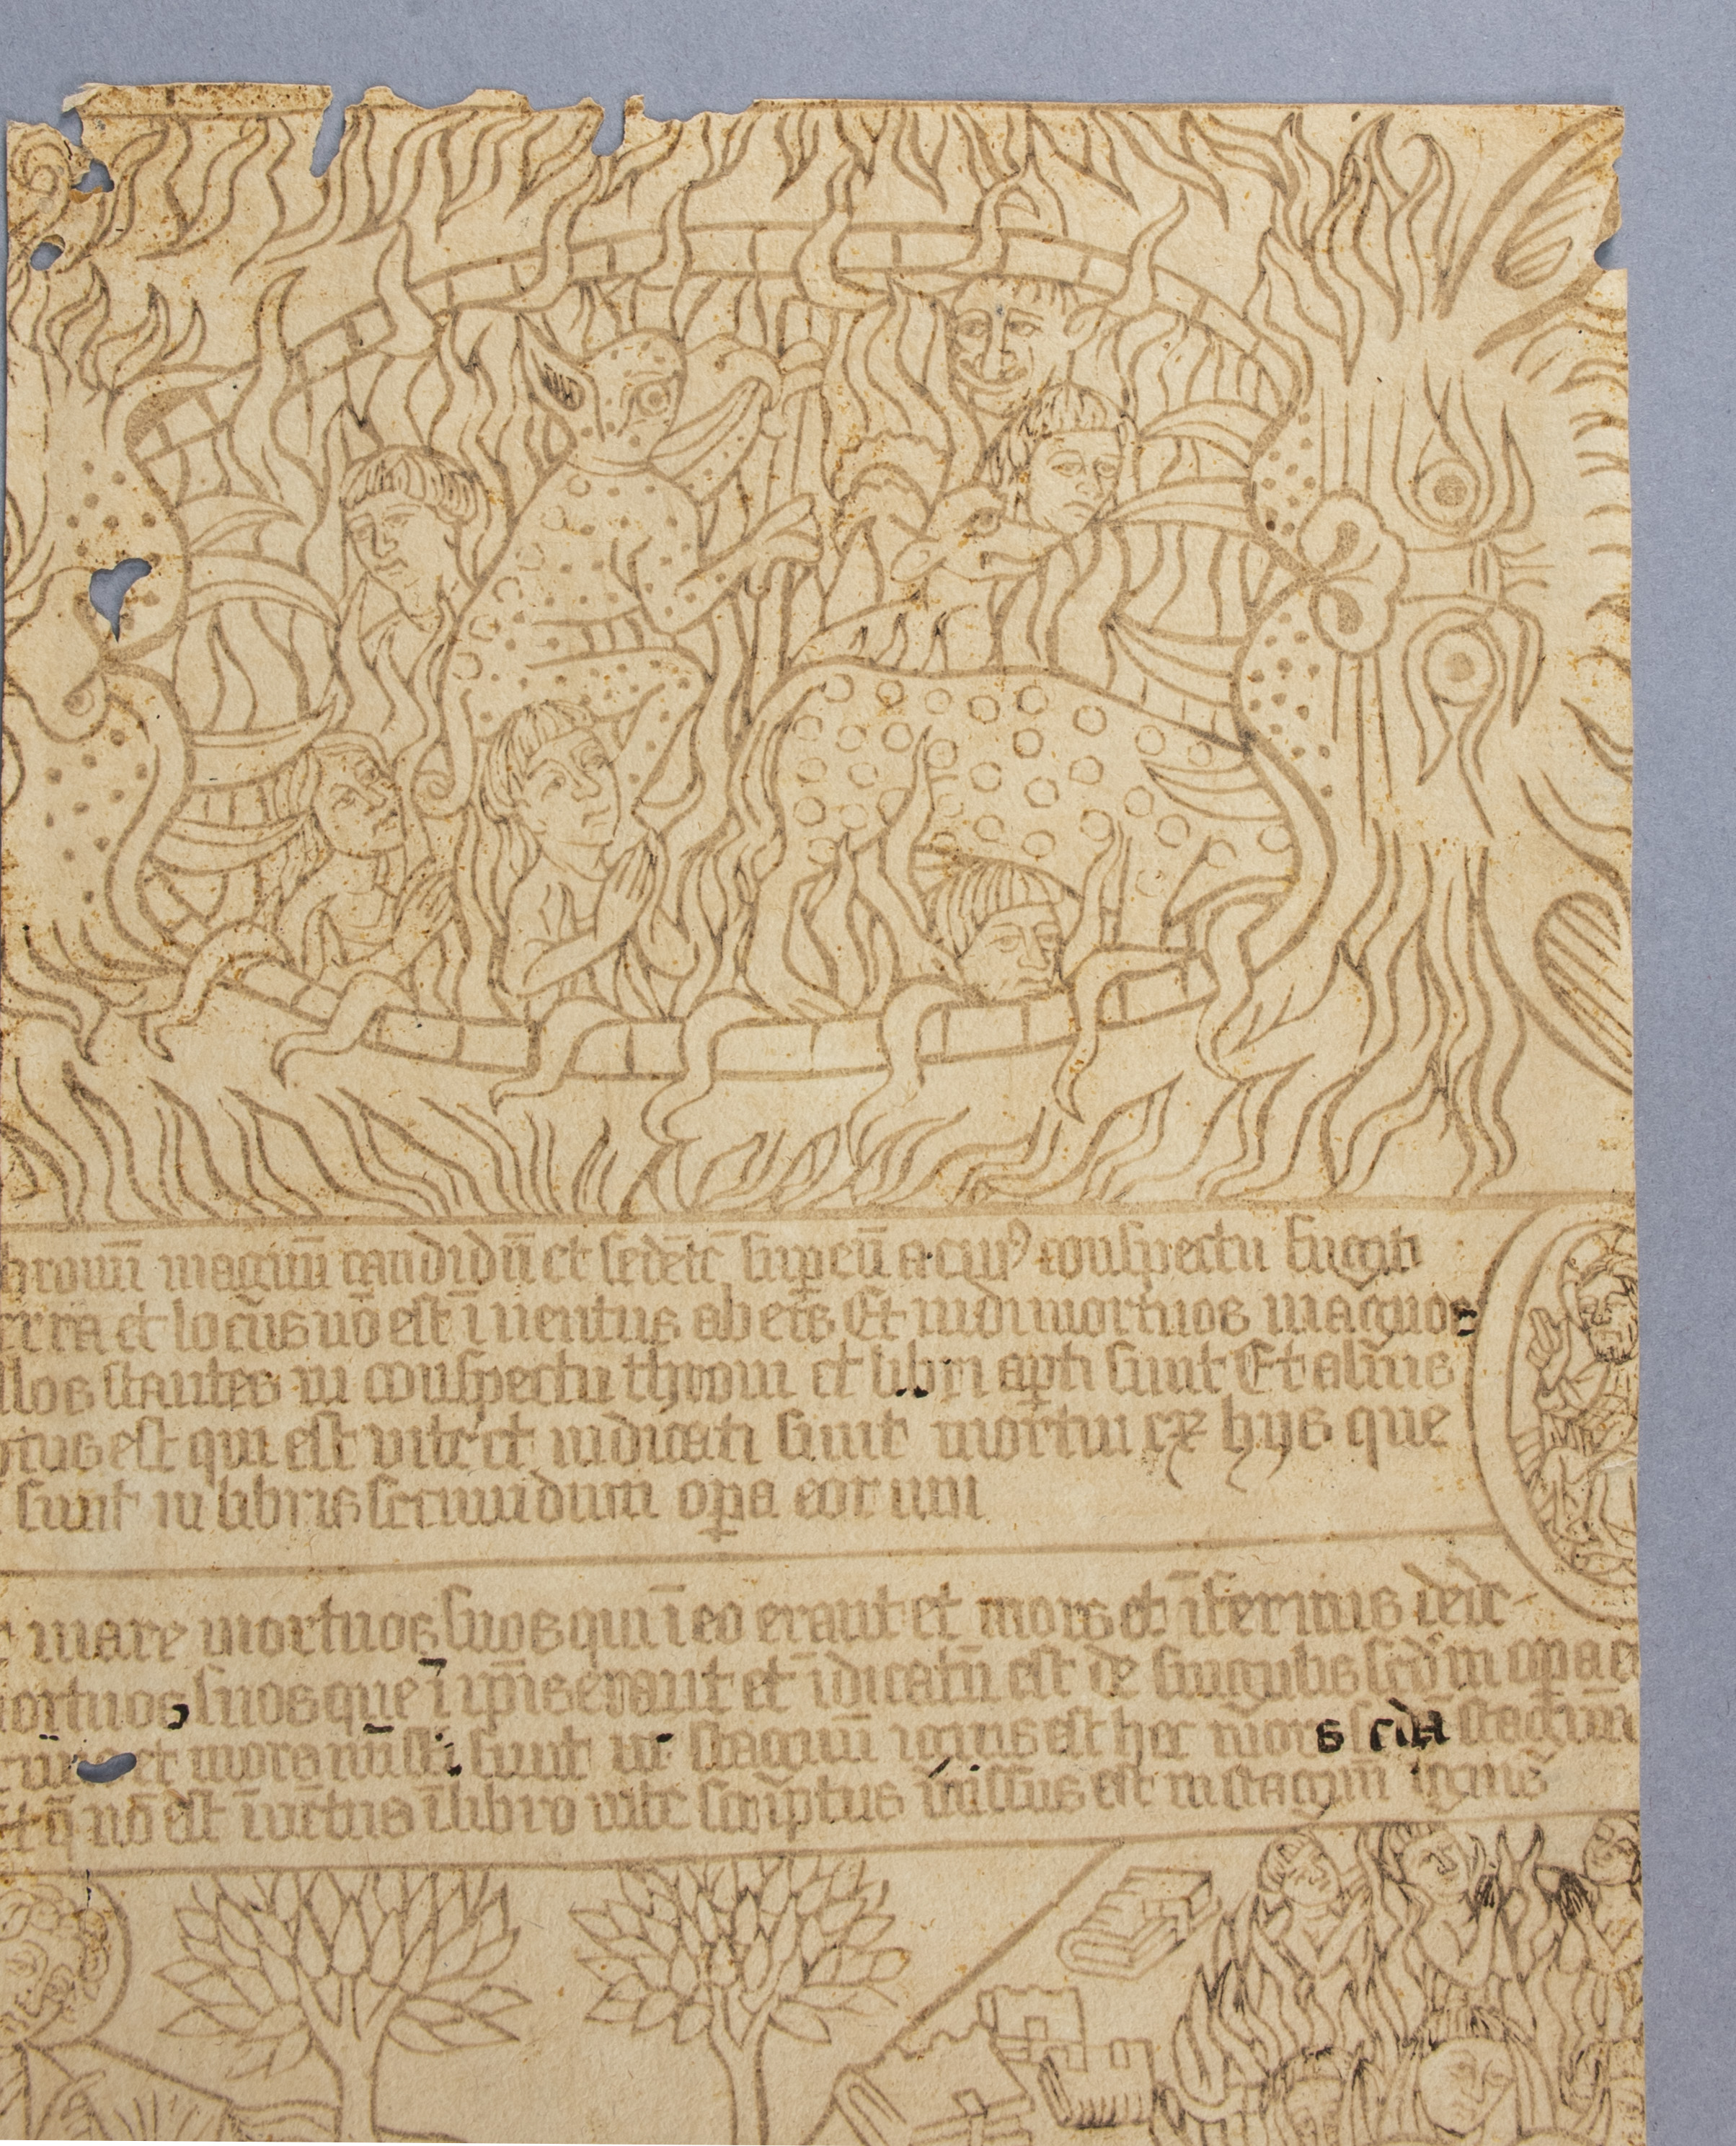 hronū magnū candidū et sedētē sup eū a cuiꝰ conspectu fugit
erra et locus nō est īuentus ab eis Et uidi mortuos magnos
llos stantes in conspectu throni et libri apti sunt Et alius
rtus est qui est vite et iudicati sunt mortui ex hijs que
sunt in libris secundum opa eorum
mare mortuos suos qui ī eo erant et mors et īfernus dedt
ortuos suos que ī ipis erant et iudicatū est de singulis scdm opa
et mors missi sunt in stagnū ignis est hec mors scda stagnum
t q nō est īuētus ī libro vite scriptus missus est in stagnū ignis